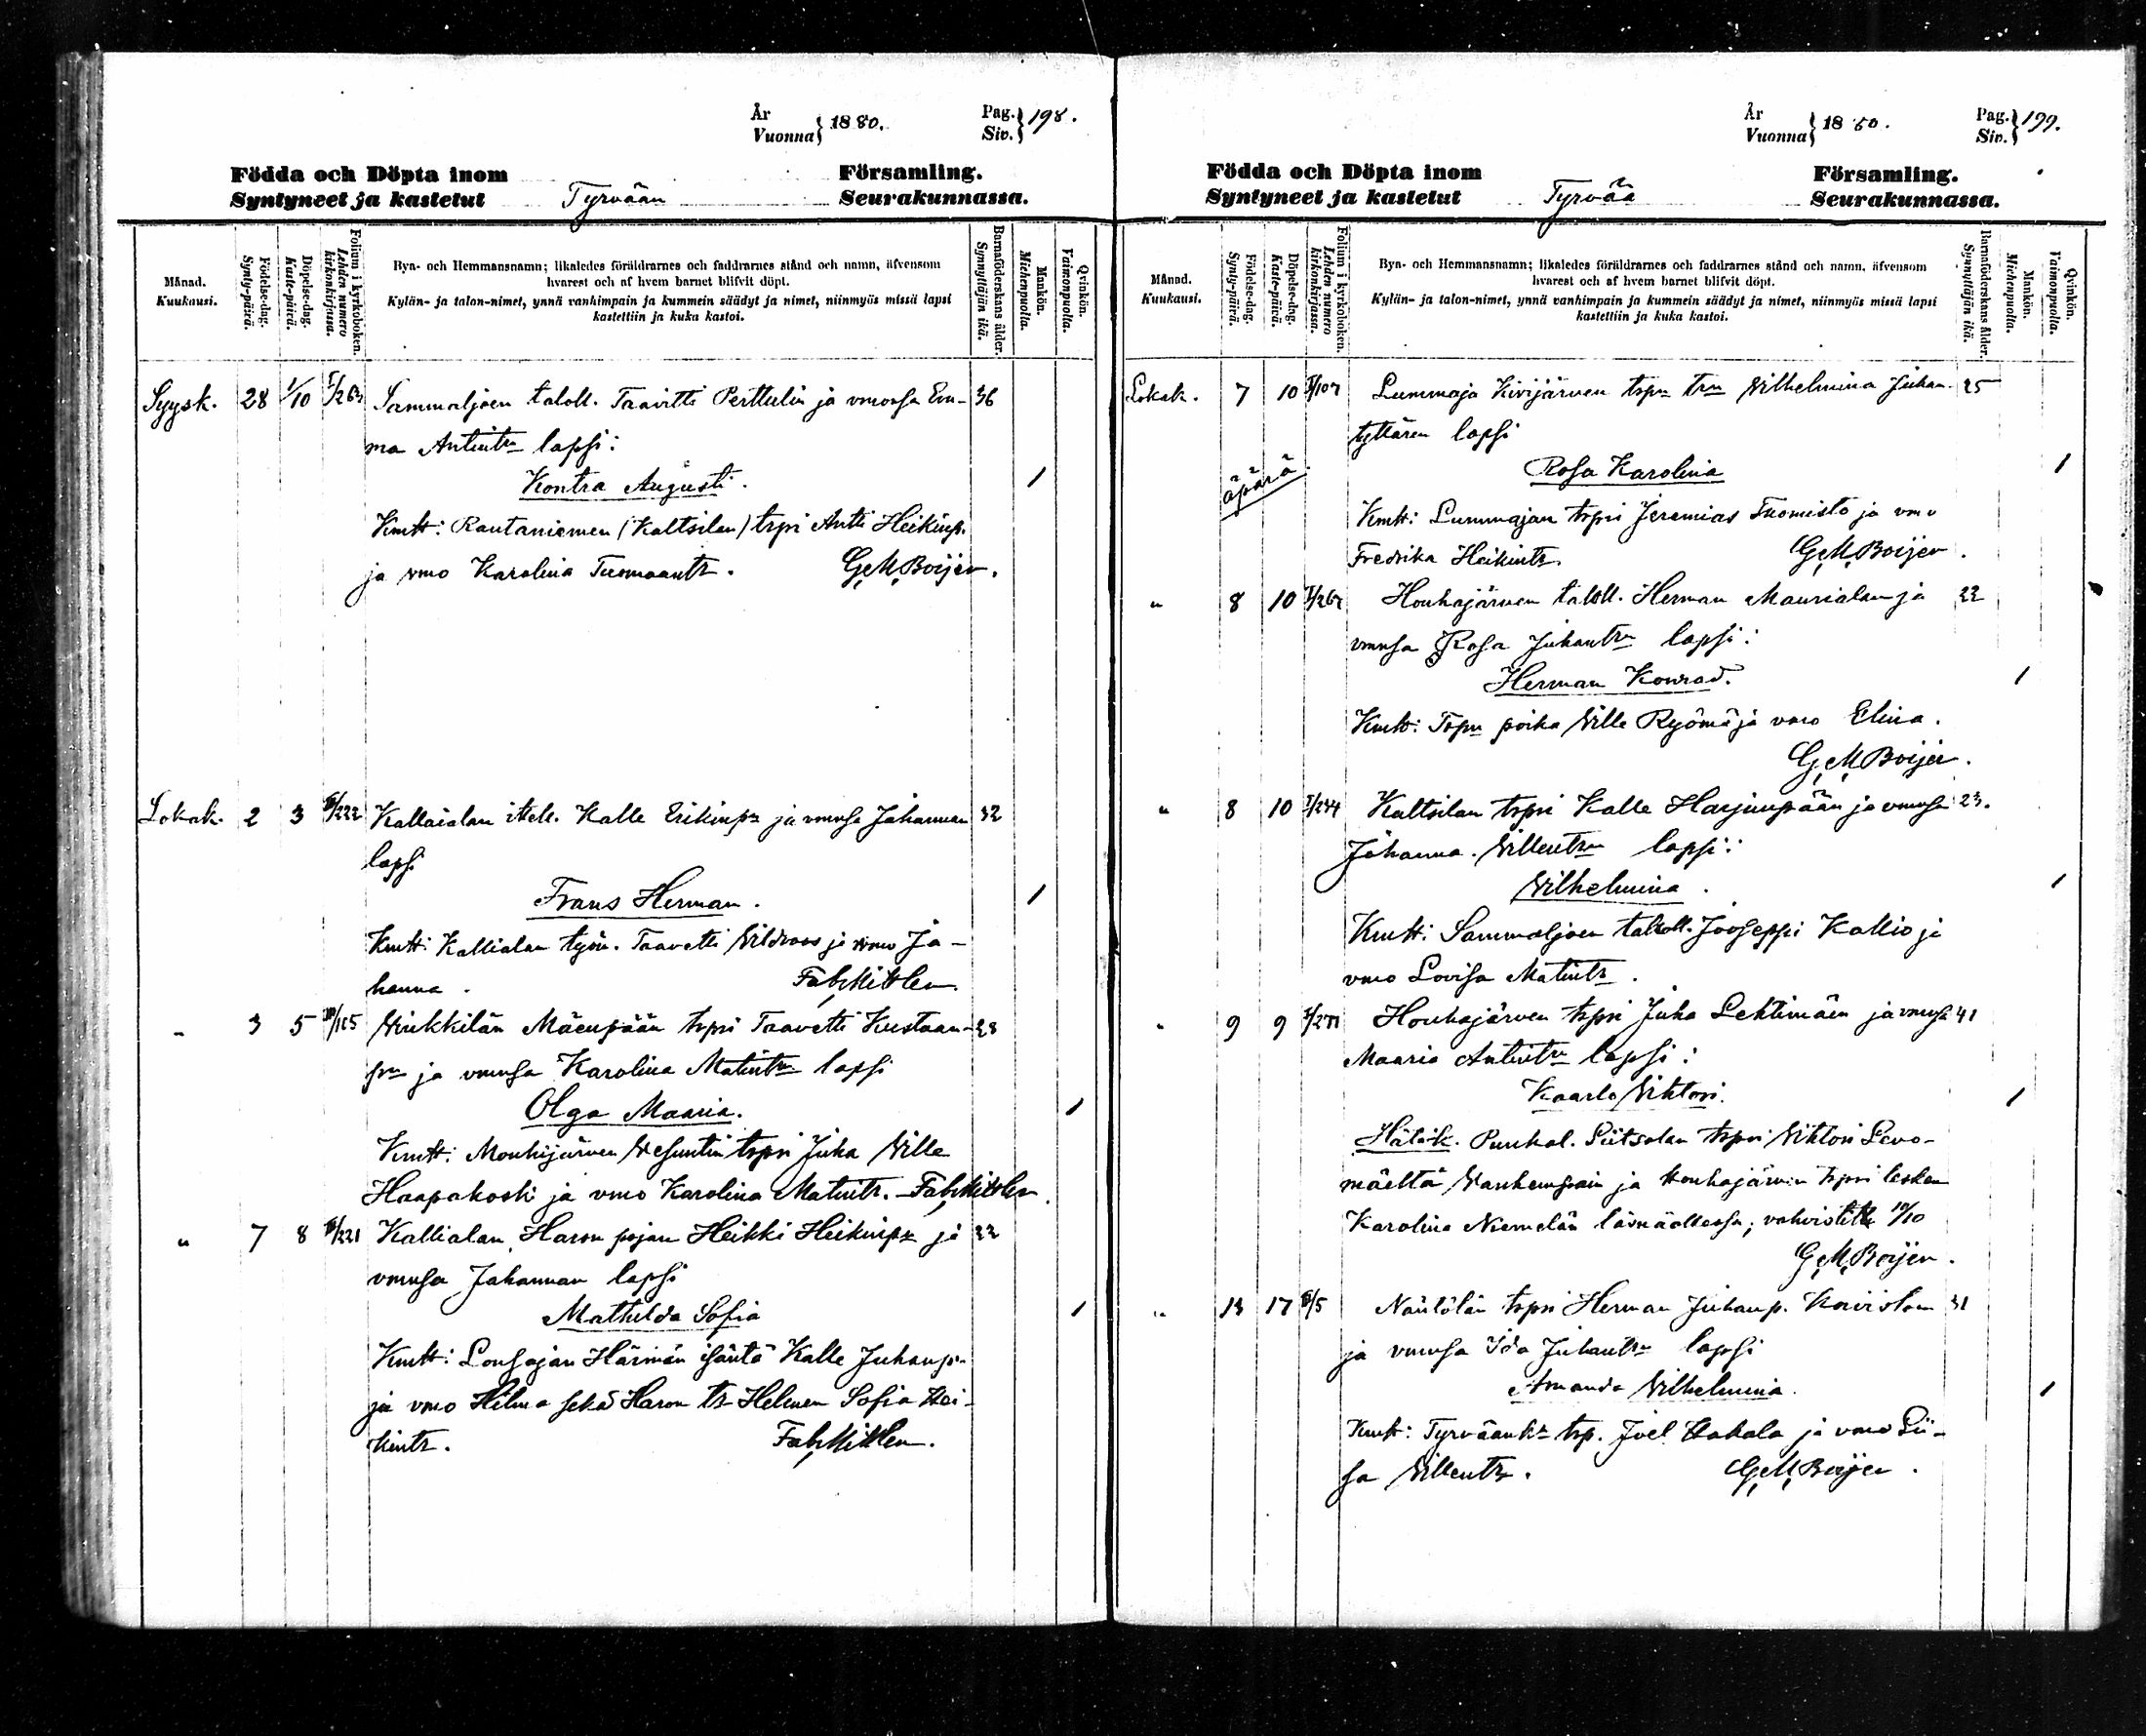 År
Vuonna } 1880.
Pag.
Siv. } 198.
Födda och Döpta inom Församling.
Syntyneet ja kastetut Tyrvään Seurakunnassa.
Månad.
Kuukausi.
Födelse-dag.
Synty-päivä.
Döpelse-dag.
Kaste-päivä.
Folium i kyrkoboken.
Lehden numero kirkonkirjassa.
Bya- och Hemmansnamn; likaledes föräldrarnes och faddrarnes stånd och namn, äfvensom
hvarest och af hvem barnet blifvit döpt.
Kylän- ja talon-nimet, ynnä vanhimpain ja kummein säädyt ja nimet, niinmyös missä lapsi
kastettiin ja kuka kastoi.
Barnaföderskans ålder.
Synnyttäjän ikä.
Mankön.
Miehenpuolia.
Qvinkön.
Vaimonpuolia.
Syysk. 28 1/10 I/263 Sammaljoen taloll. Taavitti Perttulin ja vmonsa Em- 36
ma Antintr lapsi:
Kontra Augusti. 1
Kmtt: Rautaniemen (Kaltsilan) trpri Antti Heikinp.
ja vmo Karolina Tuomaantr. G.M.Boijer.
Lokak. 2 3 /222 Kallialan itell. Kalle Erikinpn ja vmnsa Johannan 32
lapsi
Frans Herman. 1
Kmtt: Kallialan työm. Taavetti ja vmo Jo-
hanna. Fab.Kittlen.
" 3 5 /105 Mäenpään trpri Taavetti Kustaan- 28
pn ja vmnsa Karolina Matintr lapsi
Olga Maaria. 1
Kmtt: Mouhijärven Wesuntin trpri Juha Wille
Haapakoski ja vmo Karolina Matintr. Fab.Kittlen.
" 7 8 /221 Kallialan Haron pojan Heikki Heikinpn ja 22
vmnsa Johannan lapsi
Mathilda Sofia 1
Kmtt: Lousajan Härmän isäntä Kalle Juhanp.
ja vmo Hilma sekä Haron tr Helmen Sofia Hei-
kintr. Fab.Kittlen.
År
Vuonna } 1880.
Pag.
Siv. } 199.
Födda och Döpta inom Församling.
Syntyneet ja kastetut Tyrvää Seurakunnassa.
Månad.
Kuukausi.
Födelse-dag.
Synty-päivä.
Döpelse-dag.
Kaste-päivä.
Folium i kyrkoboken.
Lehden numero kirkonkirjassa.
Bya- och Hemmansnamn; likaledes föräldrarnes och faddrarnes stånd och namn, äfvensom
hvarest och af hvem barnet blifvit döpt.
Kylän- ja talon-nimet, ynnä vanhimpain ja kummein säädyt ja nimet, niinmyös missä lapsi
kastettiin ja kuka kastoi.
Barnaföderskans ålder.
Synnyttäjän ikä.
Mankön.
Miehenpuolia.
Qvinkön.
Vaimonpuolia.
Lokak. 7 10 /107 Lummaja Kivijärven trpn trn Wilhelmina Juhan- 25
tyttären lapsi
äpärä. Rosa Karolina 1
Kmtt: Lummajan trpri Jeremias Tuomisto ja vmo
Fredrika Heikintr. G.M.Boijer.
" 8 10 I/267 Houhajärven taloll. Herman Maurialan ja 22
vmnsa Rosa Juhantrn lapsi:
Herman Konrad. 1
Kmtt: Trpn poika Wille Ryömä ja vmo Elina.
G.M.Boijer.
" 8 10 I/244 Kaltsilan trpri Kalle Harjunpään ja vmnsa 23.
Johanna Willentrn lapsi:
Wilhelmina. 1
Kmtt: Sammaljoen taloll. Jooseppi Kallio ja
vmo Lovisa Matintr.
" 9 9 I/271 Houhajärven trpri Juha Lehtimäen ja vmnsa 41
Maaria Antintrn lapsi:
Kaarlo Wihtori. 1
Hätäk. Puukal. Liitsolan trpri Wihtori Levo-
mäeltä Wanhempain ja Houhajärven trpri lesken
Karolina Niemelän läsnäollessa; vahvistettu 10/10
G.M.Boijer.
" 13 17 /5 Näntölän trpri Herman Juhanp. Koiviston 31
ja vmnsa Ida Juhantrn lapsi
Amanda Wilhelmina. 1
Kmtt: Tyrväänk trp. Joel Hakala ja vmo Lii-
sa Willentr. G.M.Boijer.